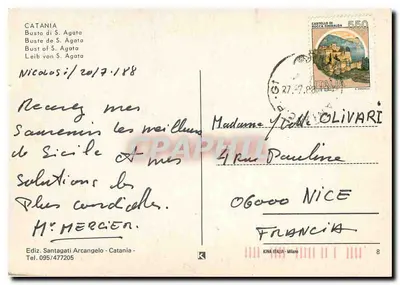 CATANIA
Busto di S. Agata
Buste de S. Agata
Bust of S. Agata
Leib von S. Agata
Nicolosi / 20/7/88
Recevez mes
Souvenirs les meilleurs
de Sicile et mes
Salutations les
Plus cordiales.
Mr MERCIER.
Ediz. Santagati Arcangelo - Catania -
Tel. 095/477205
550
Madame / OLIVARI
4 Rue Pauline
06000 NICE
FRANCIA
KINA ITALIA - Milano
8